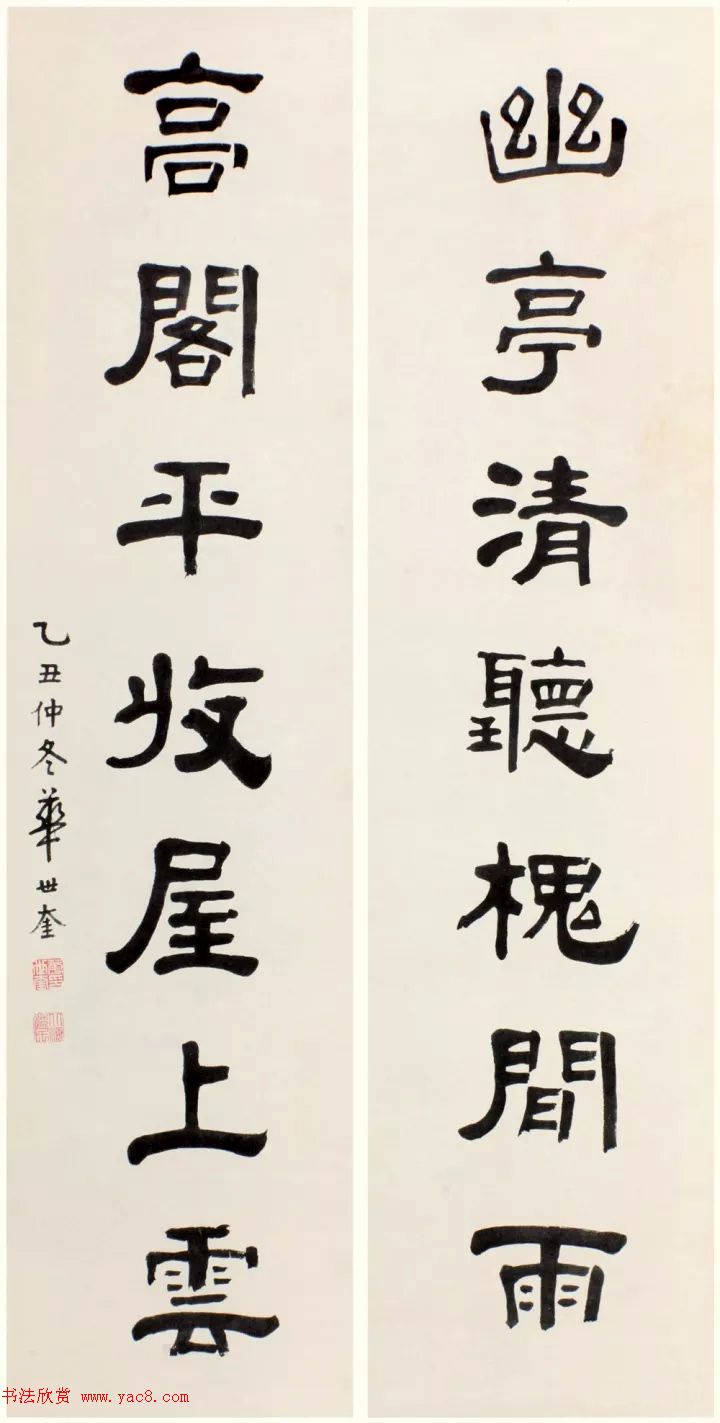 幽亭清聽槐間雨
高閣平收屋上雲
乙丑仲冬華世奎
书法欣赏 www.yac8.com